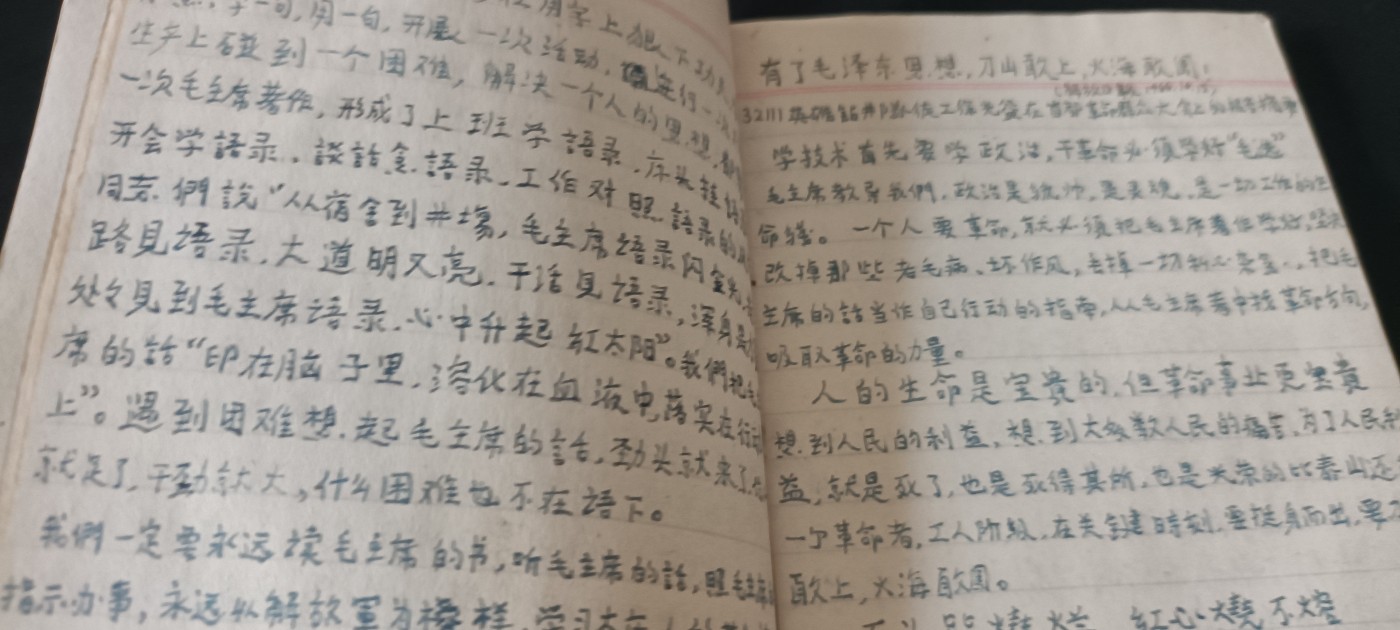 学一句,用一句,开展一次活动,进行一次
生产上碰到一个困难,解决一个人的思想,都
一次毛主席著作,形成了上班学語录,床头挂語
开会学語录、談話念語录、工作对照語录的
同志們說“从宿舍到井場,毛主席語录闪金光,
路見語录,大道明又亮,干活見語录,渾身是
处々見到毛主席語录,心中升起紅太阳”。我們把毛
席的話“印在脑子里,溶化在血液中,落实在行动
上”。遇到困难想起毛主席的話,劲头就来了,
就足了,干劲就大,什么困难也不在語下。
我們一定要永远读毛主席的书,听毛主席的話,照毛主席
指示办事,永远以解放軍为榜样,学习
有了毛泽东思想,刀山敢上,火海敢闯!
32111英雄鉆井队
学技术首先要学政治,干革命必须学好“毛选”
毛主席教导我們,政治是統帅,是灵魂,是一切工作的生
命线。一个人要革命,就必须把毛主席著作学好,坚决
改掉那些老毛病、坏作风,去掉一切私心杂念,把毛
主席的話当作自己行动的指南,从毛主席著中找革命方向,
吸取革命的力量。
人的生命是宝贵的,但革命事业更宝贵
想到人民的利益,想到大多数人民的痛苦,为了人民利
益,就是死了,也是死得其所,也是光荣的比泰山还
一个革命者,工人阶級,在关鍵时刻,要挺身而出,要刀
敢上,火海敢闯。
紅心燒不